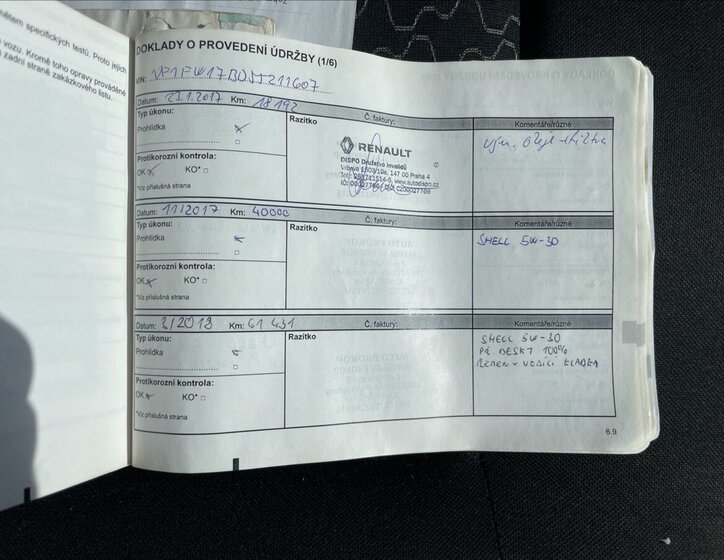 ětem specifických testů. Proto jejich
vozu. Kromě toho opravy prováděné
zadní straně zakázkového listu.
DOKLADY O PROVEDENÍ ÚDRŽBY (1/6)
VIN: VF1FW17BD55211607
Datum: 23.1.2017 Km: 18 192 Č. faktury: Komentáře/různé
Typ úkonu: Razítko
Prohlídka
RENAULT
DISPO Družstvo invalidů
147 00 Praha 4
www.autodispo.cz
Protikorozní kontrola:
OK KO* □
*Viz příslušná strana
Datum: 11/2017 Km: 40000 Č. faktury: Komentáře/různé
Typ úkonu: Razítko
Prohlídka
SHELL 5W-30
Protikorozní kontrola:
OK KO* □
*Viz příslušná strana
Datum: 3/2018 Km: 61 431 Č. faktury: Komentáře/různé
Typ úkonu: Razítko
Prohlídka
SHELL 5W-30
PŘ. DESKY 100%
ŘEMEN + VODÍCÍ KLADKA
Protikorozní kontrola:
OK KO* □
*Viz příslušná strana
6.9